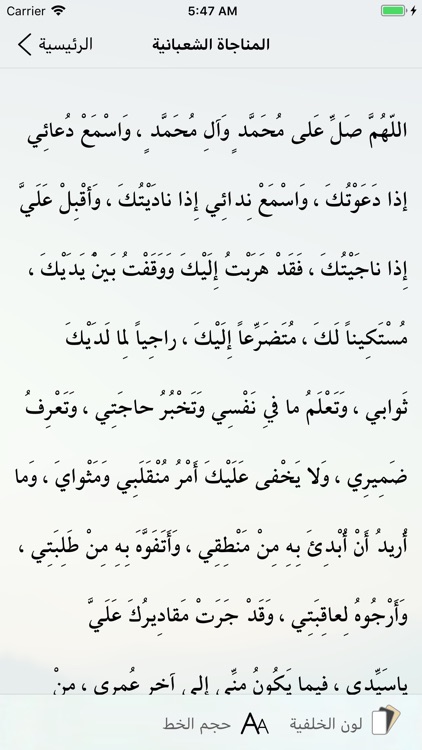 Carrier 5:47 AM
الرئيسية المناجاة الشعبانية
اللّهُمَّ صَلِّ عَلى مُحَمَّد ٍ وَآلِ مُحَمَّد ٍ ، وَاسْمَعْ دُعائِي
إذا دَعَوْتُكَ ، وَاسْمَعْ نِدائِي إِذا نادَيْتُكَ ، وَأَقْبِلْ عَلَيَّ
إِذا ناجَيْتُكَ ، فَقَدْ هَرَبْتُ إِلَيْكَ وَوَقَفْتُ بَينَْ يَدَيْكَ ،
مُسْتَكِيناً لَكَ ، مُتَضَرِّعاً إِلَيْكَ ، راجِياً لِما لَدَيْكَ
ثَوابي ، وَتَعْلَمُ ما فِي نَفْسِي وَتَخْبُرُ حاجَتِي ، وَتَعْرِفُ
ضَمِيرِي ، وَلا يَخْفى عَلَيْكَ أَمْرُ مُنْقَلَبِي وَمَثْوايَ ، وَما
أُرِيدُ أَنْ أُبْدِئَ بِهِ مِنْ مَنْطِقِي ، وَأَتَفَوَّهَ بِهِ مِنْ طَلِبَتِي ،
وَأَرْجُوهُ لِعاقِبَتِي ، وَقَدْ جَرَتْ مَقادِيرُكَ عَلَيَّ
ياسَيِّدِي ، فِيما يَكُونُ مِنِّي إِلى آخِرِ عُمرِي ، مِنْ
لون الخلفية AA حجم الخط